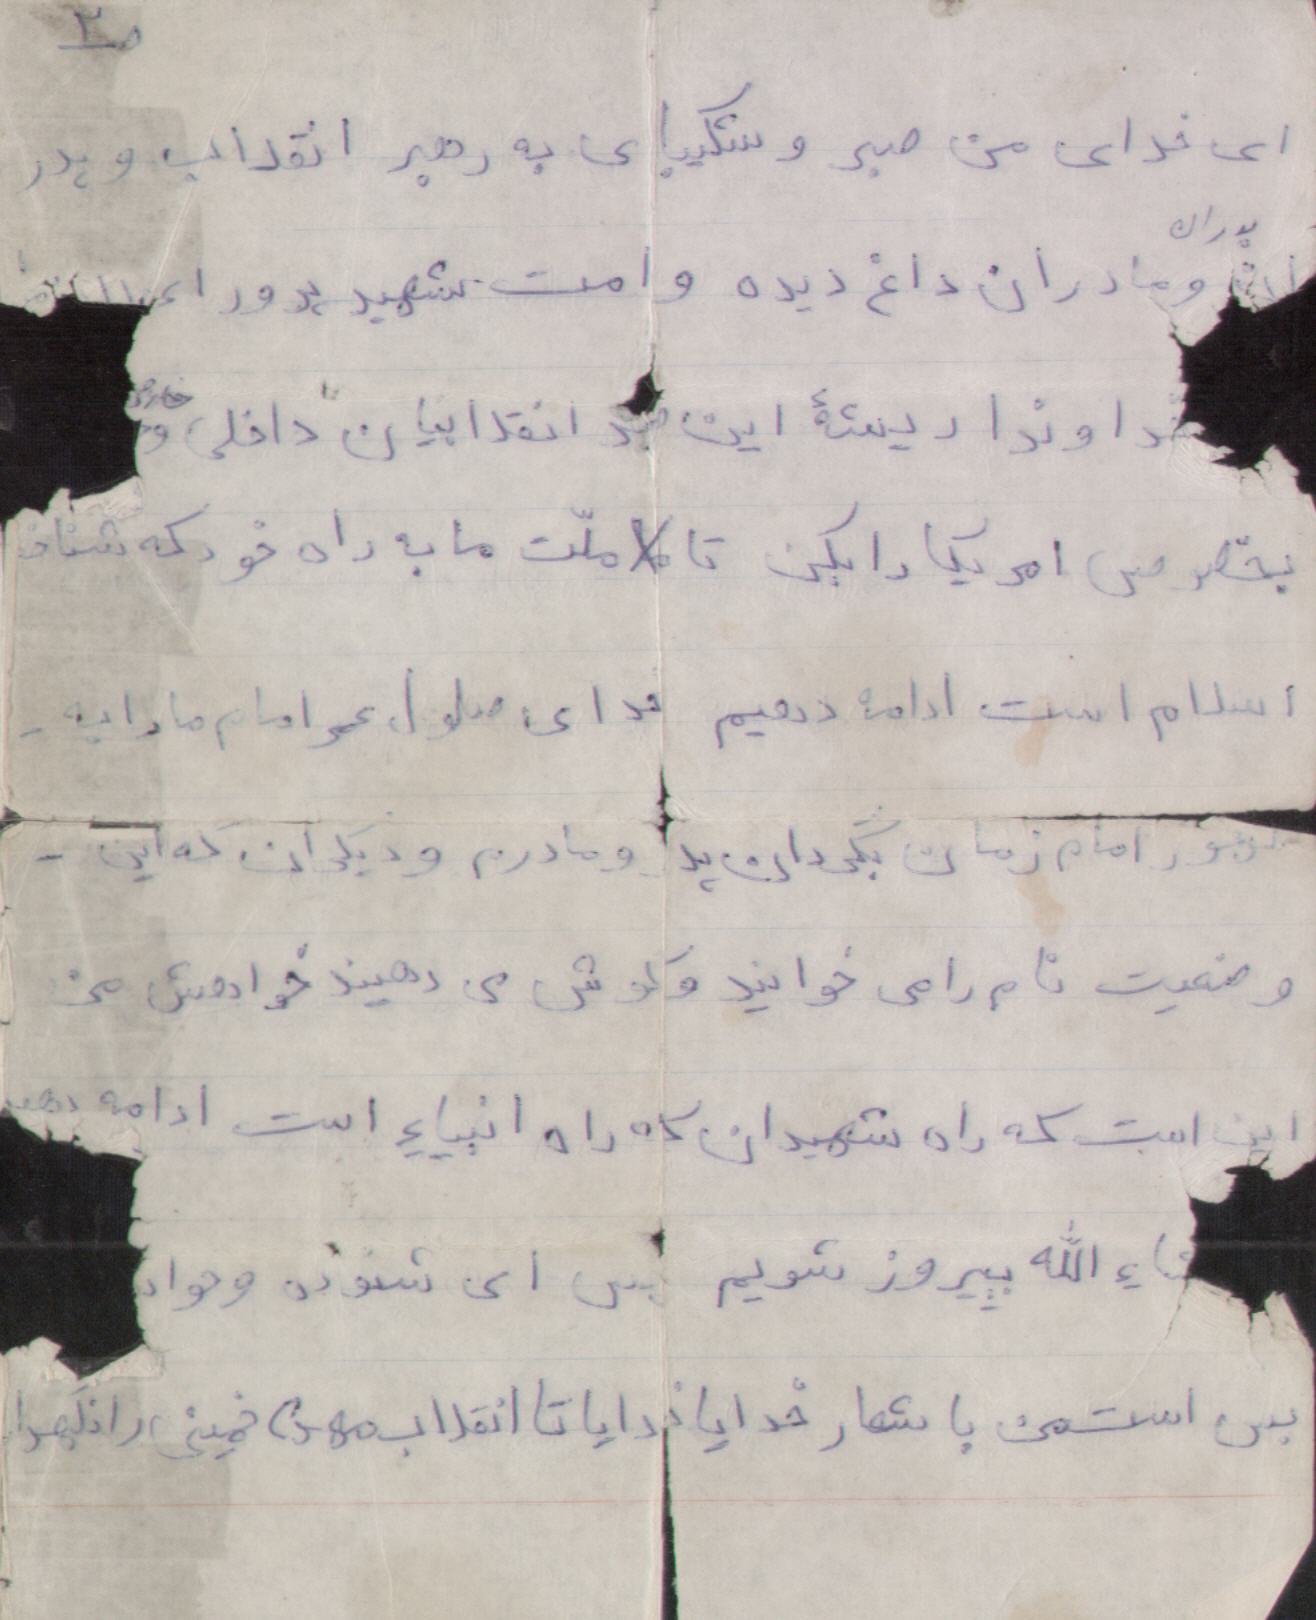 ص۳
ای خدای من صبر و شکیبای به رهبر انقلاب و پدر
پدران
و مادران داغ دیده و امت شهید پرور
خداوندا ریشهٔ این ضد انقلابیان داخلی و خارجی
بخصوص امریکا را بکن تا ملّت ما به راه خود که شناخت
اسلام است ادامه دهیم خدای طول عمر امام ما را به -
ظهور امام زمان بگردان پدر و مادرم و دیگران که این -
وصعیت نام را می خوانید و گوش می دهیند خواهش من
این است که راه شهیدان که راه انبیاء است ادامه دهید
شاء الله پیروز شویم پس ای شنونده و خواننده
بس است من با شعار خدایا خدایا تا انقلاب مهدی خمینی را نگهدار